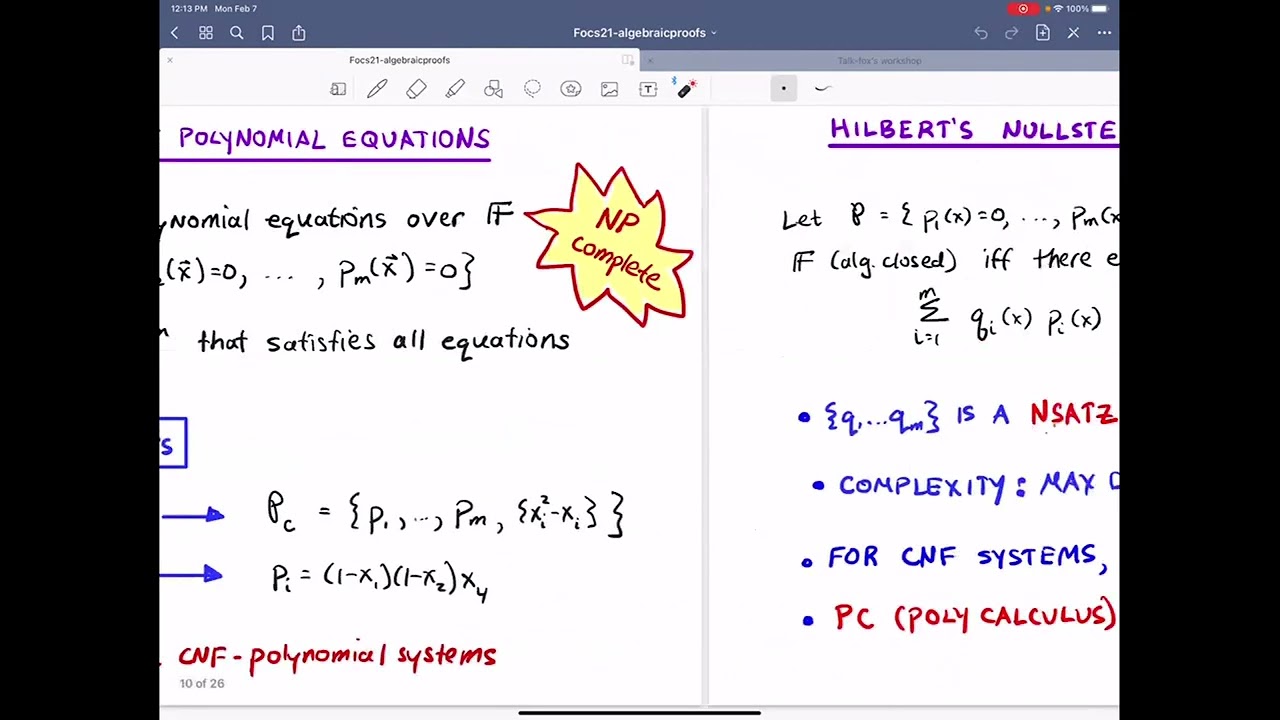 12:13 PM Mon Feb 7
100%
Focs21-algebraicproofs
Focs21-algebraicproofs
Talk-fox's workshop
POLYNOMIAL EQUATIONS
ynomial equations over 𝔽
(x⃗)=0, ..., pₘ(x⃗)=0}
that satisfies all equations
NP
complete
S
P_c = {p₁, ..., pₘ, {xᵢ²-xᵢ}}
pᵢ = (1-x₁)(1-x₂)x₄
CNF-polynomial systems
10 of 26
HILBERT'S NULLSTE
Let P = {p₁(x)=0, ..., pₘ(x
𝔽 (alg. closed) iff there e
m
Σ qᵢ(x) pᵢ(x)
i=1
• {q₁...qₘ} IS A NSATZ
• COMPLEXITY: MAX D
• FOR CNF SYSTEMS,
• PC (POLY CALCULUS)